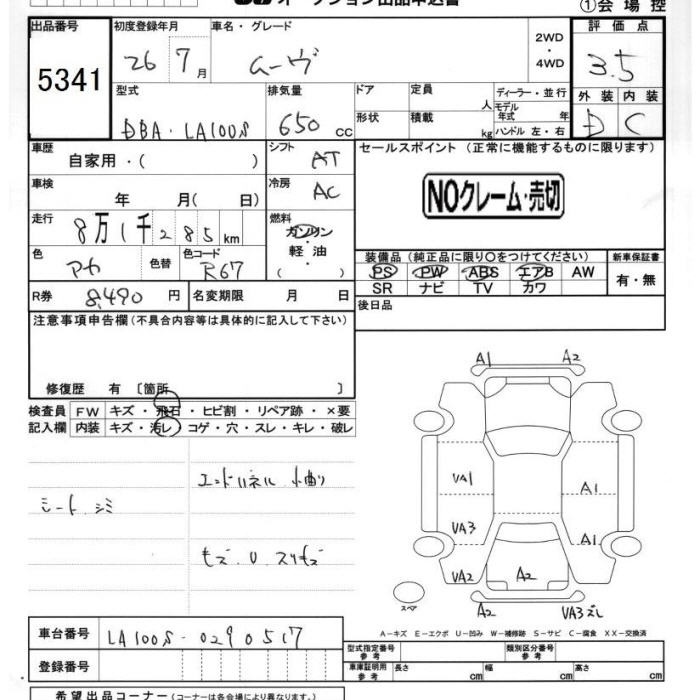 オークション出品申込書
①会場控
出品番号 5341
初度登録年月 26 7月
車名・グレード ムーヴ
2WD・4WD
評価点 3.5
外装 D 内装 C
型式 DBA・LA100S
排気量 650 CC
ドア 形状
定員 人
積載 kg
ディーラー・並行
モデル年式 年
ハンドル 左・右
車歴 自家用・( )
シフト AT
セールスポイント (正常に機能するものに限ります)
車検 年 月( 日)
冷房 AC
NOクレーム・売切
走行 8万1千285km
燃料 ガソリン・軽油 ( )
色 アカ 色替 色コード R67
装備品 (純正品に限り○をつけてください)
新車保証書
PS PW ABS エアB AW
有・無
SR ナビ TV カワ
R券 8,490円 名変期限 月 日
後日品
注意事項申告欄(不具合内容等は具体的に記入して下さい)
修復歴 有〔箇所 〕
検査員 FW キズ・飛石・ヒビ割・リペア跡・×要
記入欄 内装 キズ・汚レ・コゲ・穴・スレ・キレ・破レ
A1 A2
エンドパネル 小曲り
シート シミ
VA1 A1
VA3 A1
キズ.U.スリキズ
VA2 A2
スペア
A2 VA3ズレ
A-キズ E-エクボ U-凹み W-補修跡 S-サビ C-腐食 XX-交換済
車台番号 LA100S-0290517
型式指定番号 参考 類別区分番号 参考
登録番号
車庫証明用 参考 長さ cm 幅 cm 高さ cm
希望出品コーナー(コーナーは各会場により異なります)